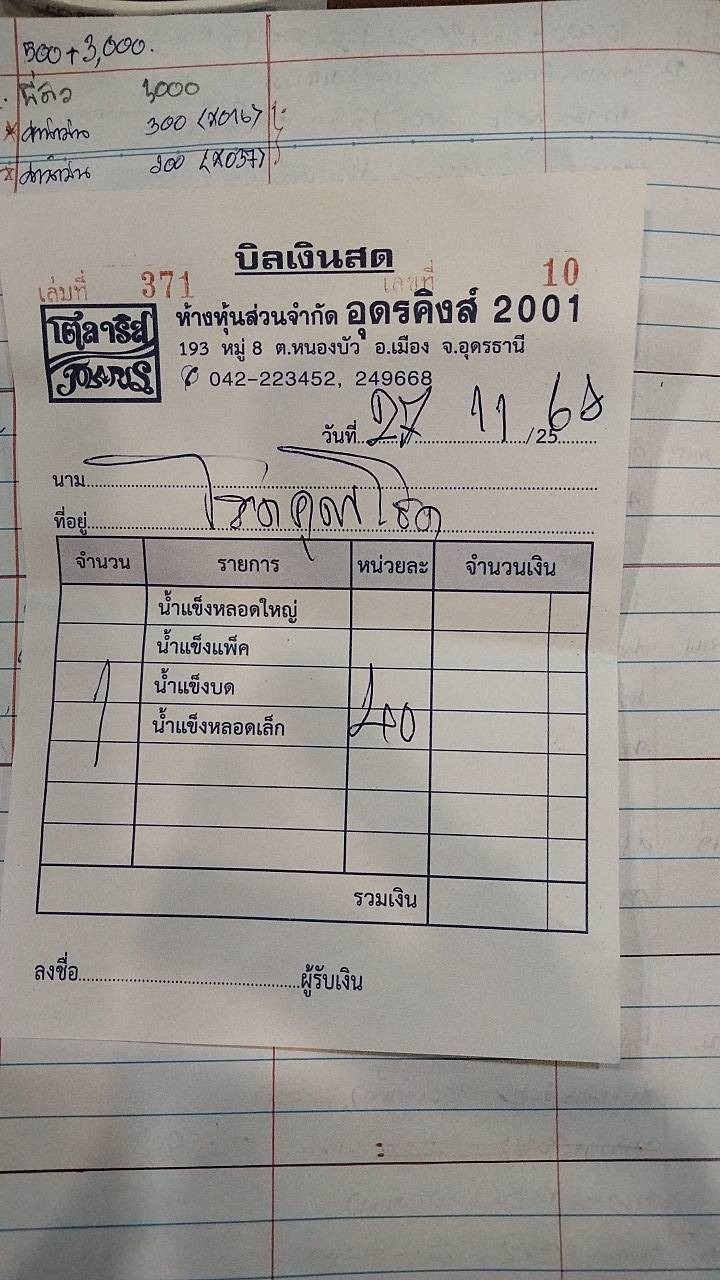 500+3,000.
3,000
300 (X016)
200 (X037)
บิลเงินสด
เล่มที่ 371 เลขที่ 10
ห้างหุ้นส่วนจำกัด อุดรคิงส์ 2001
โตลาริส
193 หมู่ 8 ต.หนองบัว อ.เมือง จ.อุดรธานี
042-223452, 249668
วันที่ 27 11 /25 68
นาม
ที่อยู่
จำนวน รายการ หน่วยละ จำนวนเงิน
น้ำแข็งหลอดใหญ่
น้ำแข็งแพ็ค
น้ำแข็งบด
1 น้ำแข็งหลอดเล็ก 40
รวมเงิน
ลงชื่อ ผู้รับเงิน